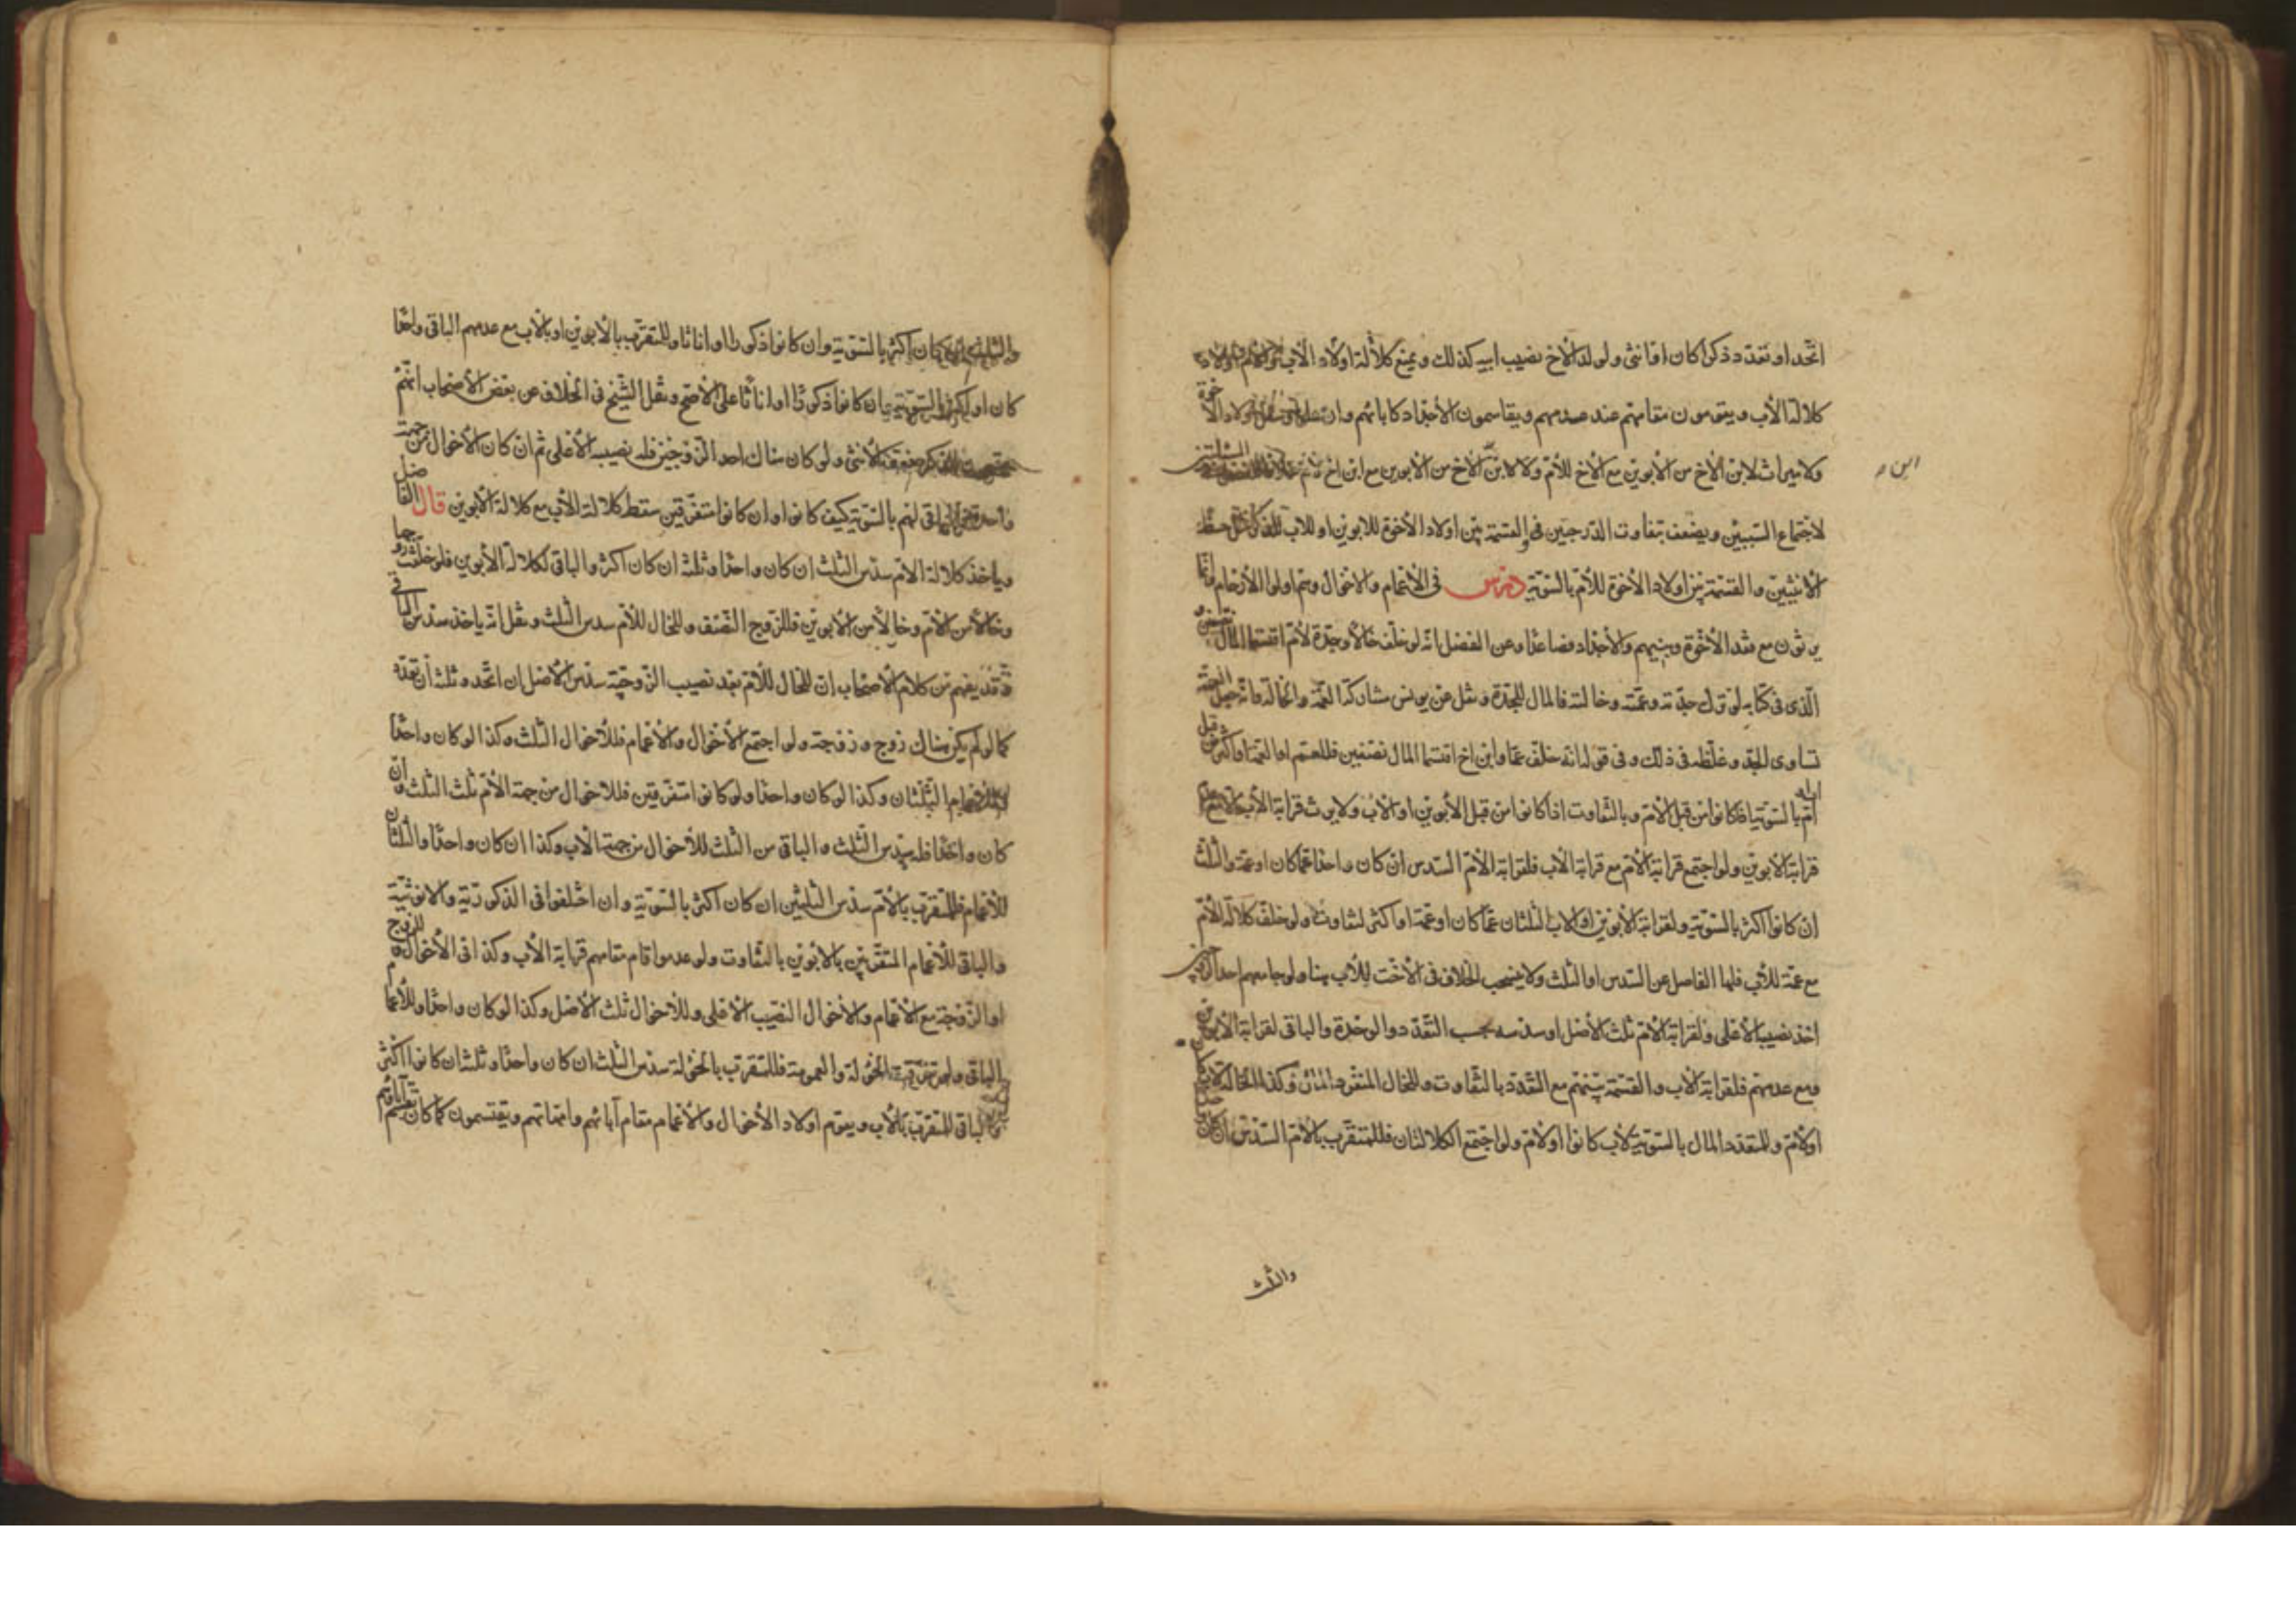 اتّحد او تعدّد ذكرا كان او انثى ولولد الأخ نصيب ابيه كذلك ويمنع كلالة اولاد الأب
كلالة الأب ويقومون مقامهم عند عدمهم ويقاسمون الأجداد كآبائهم وان الأخوة
ولا ميراث لابن الأخ من الأبوين مع الأخ للأمّ ولا لابن ابن الأخ من الأبوين مع ابن اخ لأمّ
ابن
لاجتماع السّببين ويضعف بتفاوت الدّرجتين والقسمة بين اولاد الأخوة للأبوين او للأب للذكر مثل حظّ
الأنثيين والقسمة بين اولاد الأخوة للأمّ بالسّويّة درس في الأعمام والأخوال وهم اولوا الأرحام وانّما
يرثون مع فقد الأخوة وبنيهم والأجداد فصاعدا وعن الفضل انّه لو خلّف خالا وجدّة لأمّ اقتسما المال نصفين و
الّذي في كتابه لو ترك جدّته وعمّته وخالته فالمال للجدّة ونقل عن يونس مشاركة العمّة والخالة وانّه جعل العمّة
تساوى الجدّ وغلّطه في ذلك وفي قوله انّه خلّف عمّا وابن اخ اقتسما المال نصفين فللعمّ او العمّة او اكثر من قبل
أمّ بالسّويّة اذا كانوا من قبل الأمّ وبالتّفاوت اذا كانوا من قبل الأبوين او الأب ولا يرث قرابة الأب مع
قرابة الأبوين ولو اجتمع قرابة الأمّ مع قرابة الأب فلقرابة الأمّ السّدس ان كان واحدا عمّا كان او عمّة والثّلث
ان كانوا اكثر بالسّويّة ولقرابة الأبوين او الأب الثلثان عمّا كان او عمّة او اكثر لتفاوت ولو خلّف كلالة الأمّ
مع عمّة للأب فلها الفاضل عن السّدس او الثلث ولا ينسحب الخلاف في الأخت للأب هنا ولو جامعهم احد الزوجين
اخذ نصيبه الأعلى ولقرابة الأمّ ثلث الأصل او سدسه بحسب التّعدّد والوحدة والباقي لقرابة الأبوين
ومع عدمهم فلقرابة الأب والقسمة بينهم مع التّعدّد بالتّفاوت وللخال المنفرد المال وكذا الخالة لأب كان
او لأمّ وللمتعدّد المال بالسّويّة لأب كانوا او لأمّ ولو اجتمع الكلالتان فللمتقرّب بالأمّ السّدس ان كان واحدا
والثلث
والثلث ان كان اكثر بالسّويّة وان كانوا ذكورا او اناثا وللمتقرّب بالأبوين او بالأب مع عدمهم الباقي واحدا
كان او اكثر بالسّويّة ان كانوا ذكورا او اناثا على الأصحّ ونقل الشّيخ في الخلاف عن بعض الأصحاب انّهم
للذكر ضعف الأنثى ولو كان هناك احد الزّوجين فله نصيبه الأعلى ثم ان كان الأخوال من جهة
واحدة فالباقي لهم بالسّويّة كيف كانوا وان كانوا متفرّقين سقط كلالة الأب مع كلالة الأبوين قال الفاضل
وياخذ كلالة الأمّ سدس الثلث ان كان واحدا وثلثه ان كان اكثر والباقي لكلالة الأبوين فلو خلّفت زوجا
وخالا من الأمّ وخالا من الأبوين فللزّوج النّصف وللخال للأمّ سدس الثلث ونقل انّه ياخذ سدس الباقي
وقد يفهم من كلام الأصحاب انّ للخال للأمّ بعد نصيب الزّوجيّة سدس الأصل ان اتّحد وثلثه ان تعدّد
كما لو لم يكن هناك زوج وزوجة ولو اجتمع الأخوال والأعمام فللأخوال الثلث وكذا لو كان واحدا
وللأعمام الثّلثان وكذا لو كان واحدا ولو كانوا متفرّقين فللأخوال من جهة الأمّ ثلث الثلث وان
كان واحدا فله سدس الثلث والباقي من الثلث للأخوال من جهة الأب وكذا ان كان واحدا والثلثان
للأعمام فللمتقرّب بالأمّ سدس الثلثين ان كان اكثر بالسّويّة وان اختلفوا في الذكوريّة والأنوثيّة
والباقي للأعمام المتقرّبين بالأبوين بالتّفاوت ولو عدموا قام مقامهم قرابة الأب وكذا في الأخوال وللزّوج
او الزّوجة مع الأعمام والأخوال النصيب الأعلى وللأخوال ثلث الأصل وكذا لو كان واحدا وللأعمام
الباقي ولو تفرّقت الخؤلة والعمومة فللمتقرّب بالخؤلة سدس الثلث ان كان واحدا وثلثه ان كانوا اكثر
والباقي للمتقرّب بالأب ويقوم اولاد الأخوال والأعمام مقام آبائهم وامّهاتهم ويقتسمون كما كان يقتسم آباؤهم